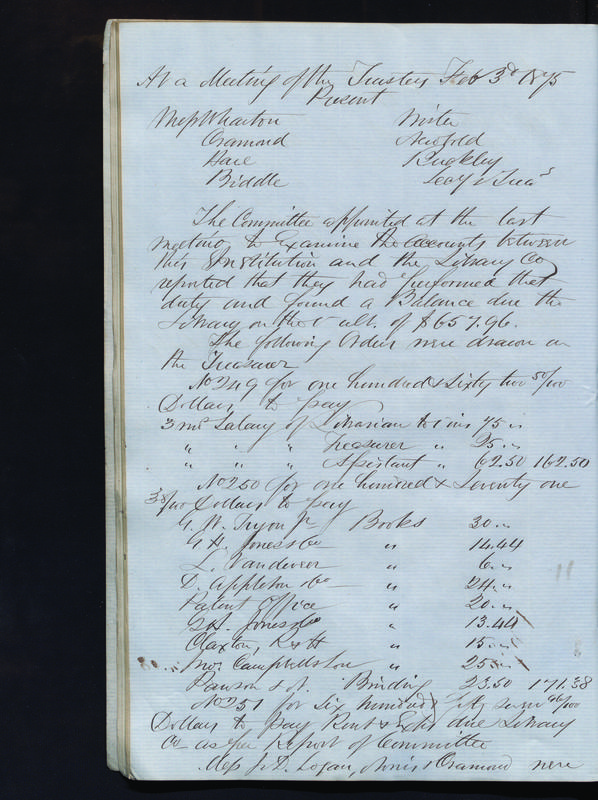 At a Meeting of the Trustees Feb 3d 1875
Present
Mess Wharton Wister
Oramond Newbold
Hare Rugkley
Biddle Secy & Treas
The Committee appointed at the last
meeting to Examine the accounts between
this Institution and the Library Co
reported that they had performed that
duty and found a Balance due the
Library on the ult. of $657.96.
The following Orders were drawn on
the Treasurer
No 249 for one hundred & Sixty two 50/100
Dollars to pay
3 mos Salary of Librarian to 1 ins 75 "
" " " Treasurer " 25 "
" " " Assistant " 62.50 162.50
No 250 for one hundred & Seventy one
38/100 Dollars to pay
G. W. Tryon Jr Books 30 "
G. H. Jones & Co " 14.44
L. Vandeveer " 6 "
D. Appleton & Co " 24 "
Patent Office " 20 "
G. H. Jones & Co " 13.44
Claxton, R & H " 15 "
Jno. Campbell & Son " 25 "
Pawson & N. Binding 23.50 171.38
No 251 for Six hundred & fifty seven 96/100
Dollars to pay Rent & Exps due Library
Co as per Report of Committee
Mess J. D. Logan, Norris & Oramond were